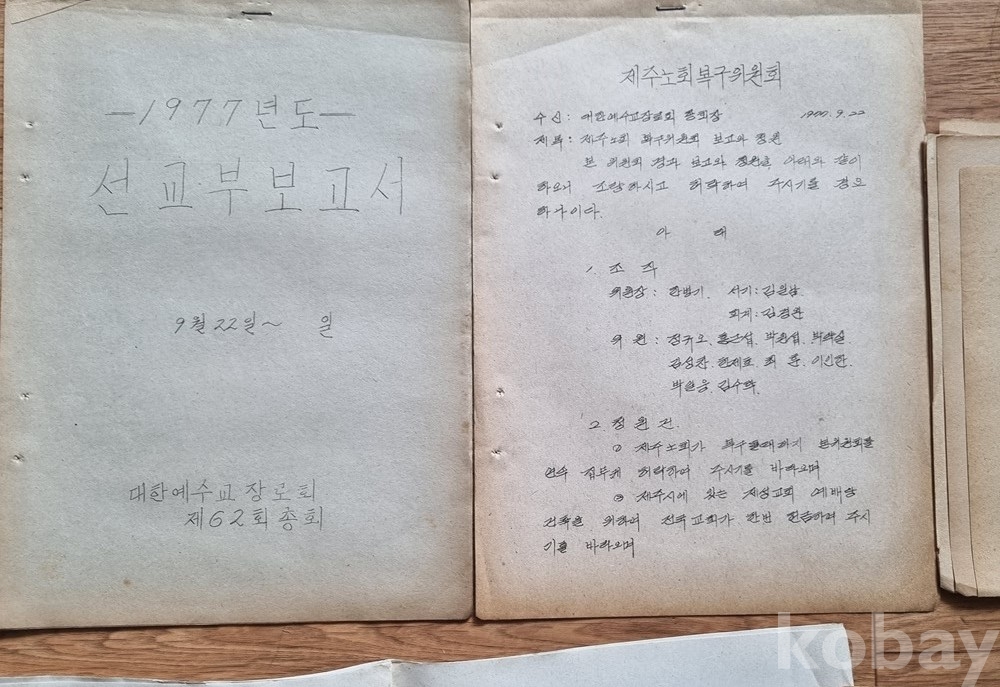 -1977년도-
선교부보고서
9월 22일~ 일
대한예수교장로회
제62회총회
제주노회복구위원회
수신: 대한예수교장로회 총회장 1977. 9. 22
제목: 제주노회 복구위원회 보고와 청원
본 위원회 경과 보고와 청원을 아래와 같이
하오니 조량하시고 허락하여 주시기를 경요
하나이다.
아 래
1. 조 직
위원장: 한병기. 서기: 김일남.
회계:
위 원: 정규오. 홍근섭. 박찬섭.
최 훈. 이인한.
2. 청 원 건
① 제주노회가 복구될때까지 본위원회를
연속 집무케 허락하여 주시기를 바라오며
② 제주시에 있는 제성교회 예배당
건축을 위하여 전국교회가 한번 헌금하여 주시
기를 바라오며
kobay